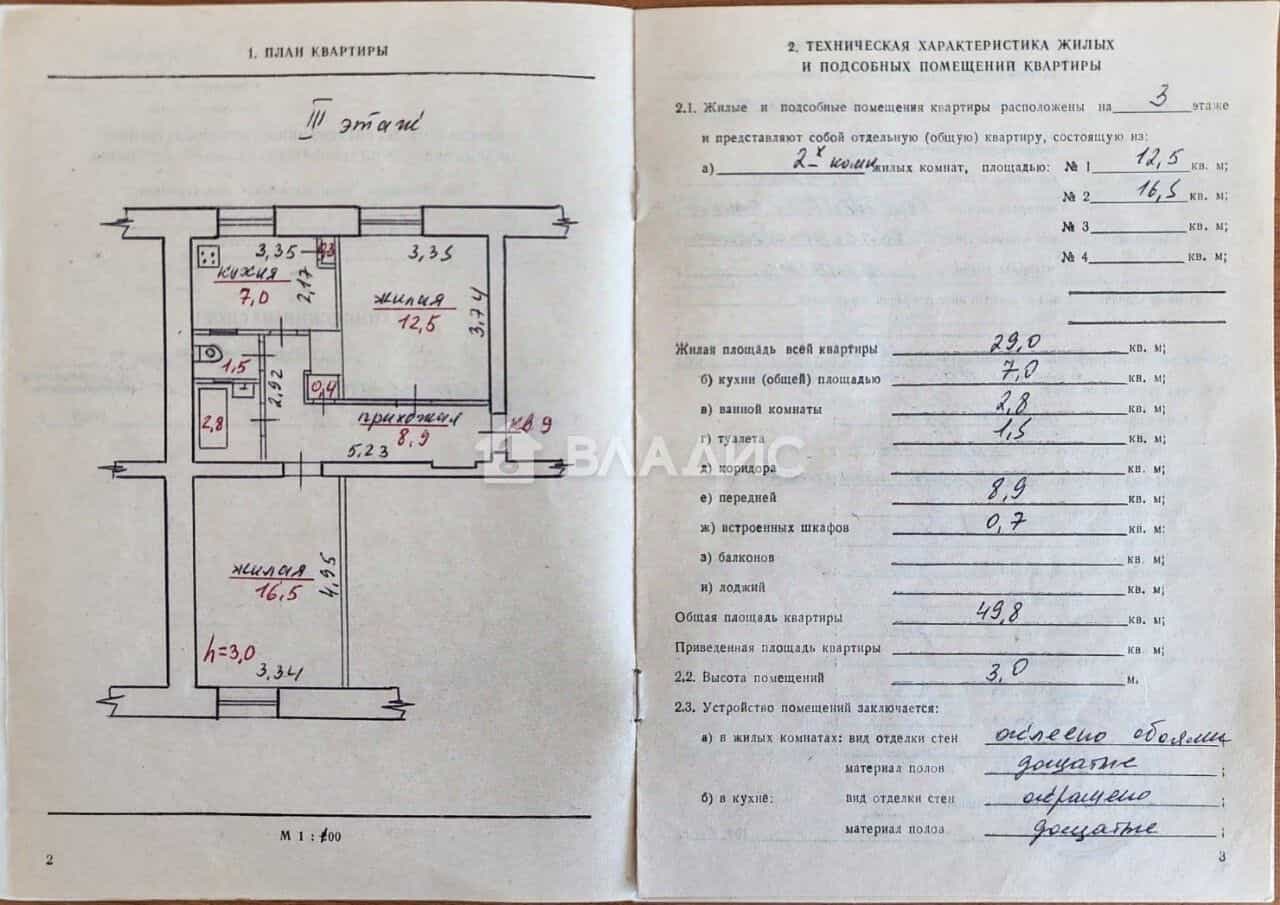 1. ПЛАН КВАРТИРЫ
III этаж
3,35
0,3
3,35
кухня
7,0
2,17
жилая
12,5
3,74
1,5
2,92
0,4
2,8
прихожая
8,9
кв 9
5,23
ВЛАДИС
жилая
16,5
4,95
h=3,0
3,34
М 1 : 100
2
2. ТЕХНИЧЕСКАЯ ХАРАКТЕРИСТИКА ЖИЛЫХ
И ПОДСОБНЫХ ПОМЕЩЕНИЙ КВАРТИРЫ
2.1. Жилые и подсобные помещения квартиры расположены на 3 этаже
и представляют собой отдельную (общую) квартиру, состоящую из:
а) 2-х комн жилых комнат, площадью: № 1 12,5 кв. м;
№ 2 16,5 кв. м;
№ 3 кв. м;
№ 4 кв. м;
Жилая площадь всей квартиры 29,0 кв. м;
б) кухни (общей) площадью 7,0 кв. м;
в) ванной комнаты 2,8 кв. м;
г) туалета 1,5 кв. м;
д) коридора кв. м;
е) передней 8,9 кв. м;
ж) встроенных шкафов 0,7 кв. м;
з) балконов кв. м;
и) лоджий кв. м;
Общая площадь квартиры 49,8 кв. м;
Приведенная площадь квартиры кв. м;
2.2. Высота помещений 3,0 м.
2.3. Устройство помещений заключается:
а) в жилых комнатах: вид отделки стен оклеено обоями
материал полов дощатые ;
б) в кухне: вид отделки стен окрашено ;
материал полов дощатые ;
3